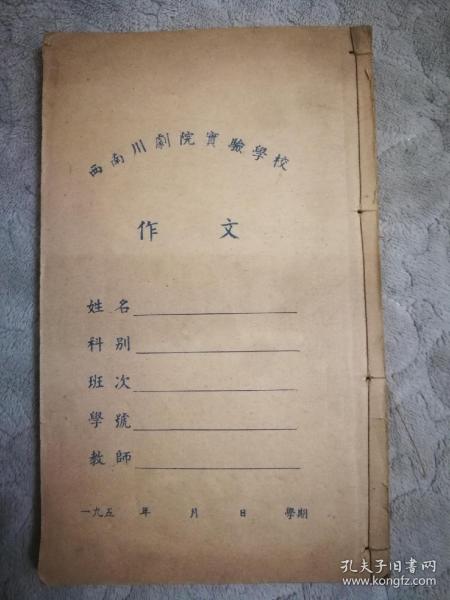 西南川劇院實驗學校
作 文
姓名
科別
班次
學號
教師
一九五 年 月 日 學期
孔夫子旧书网
www.kongfz.com